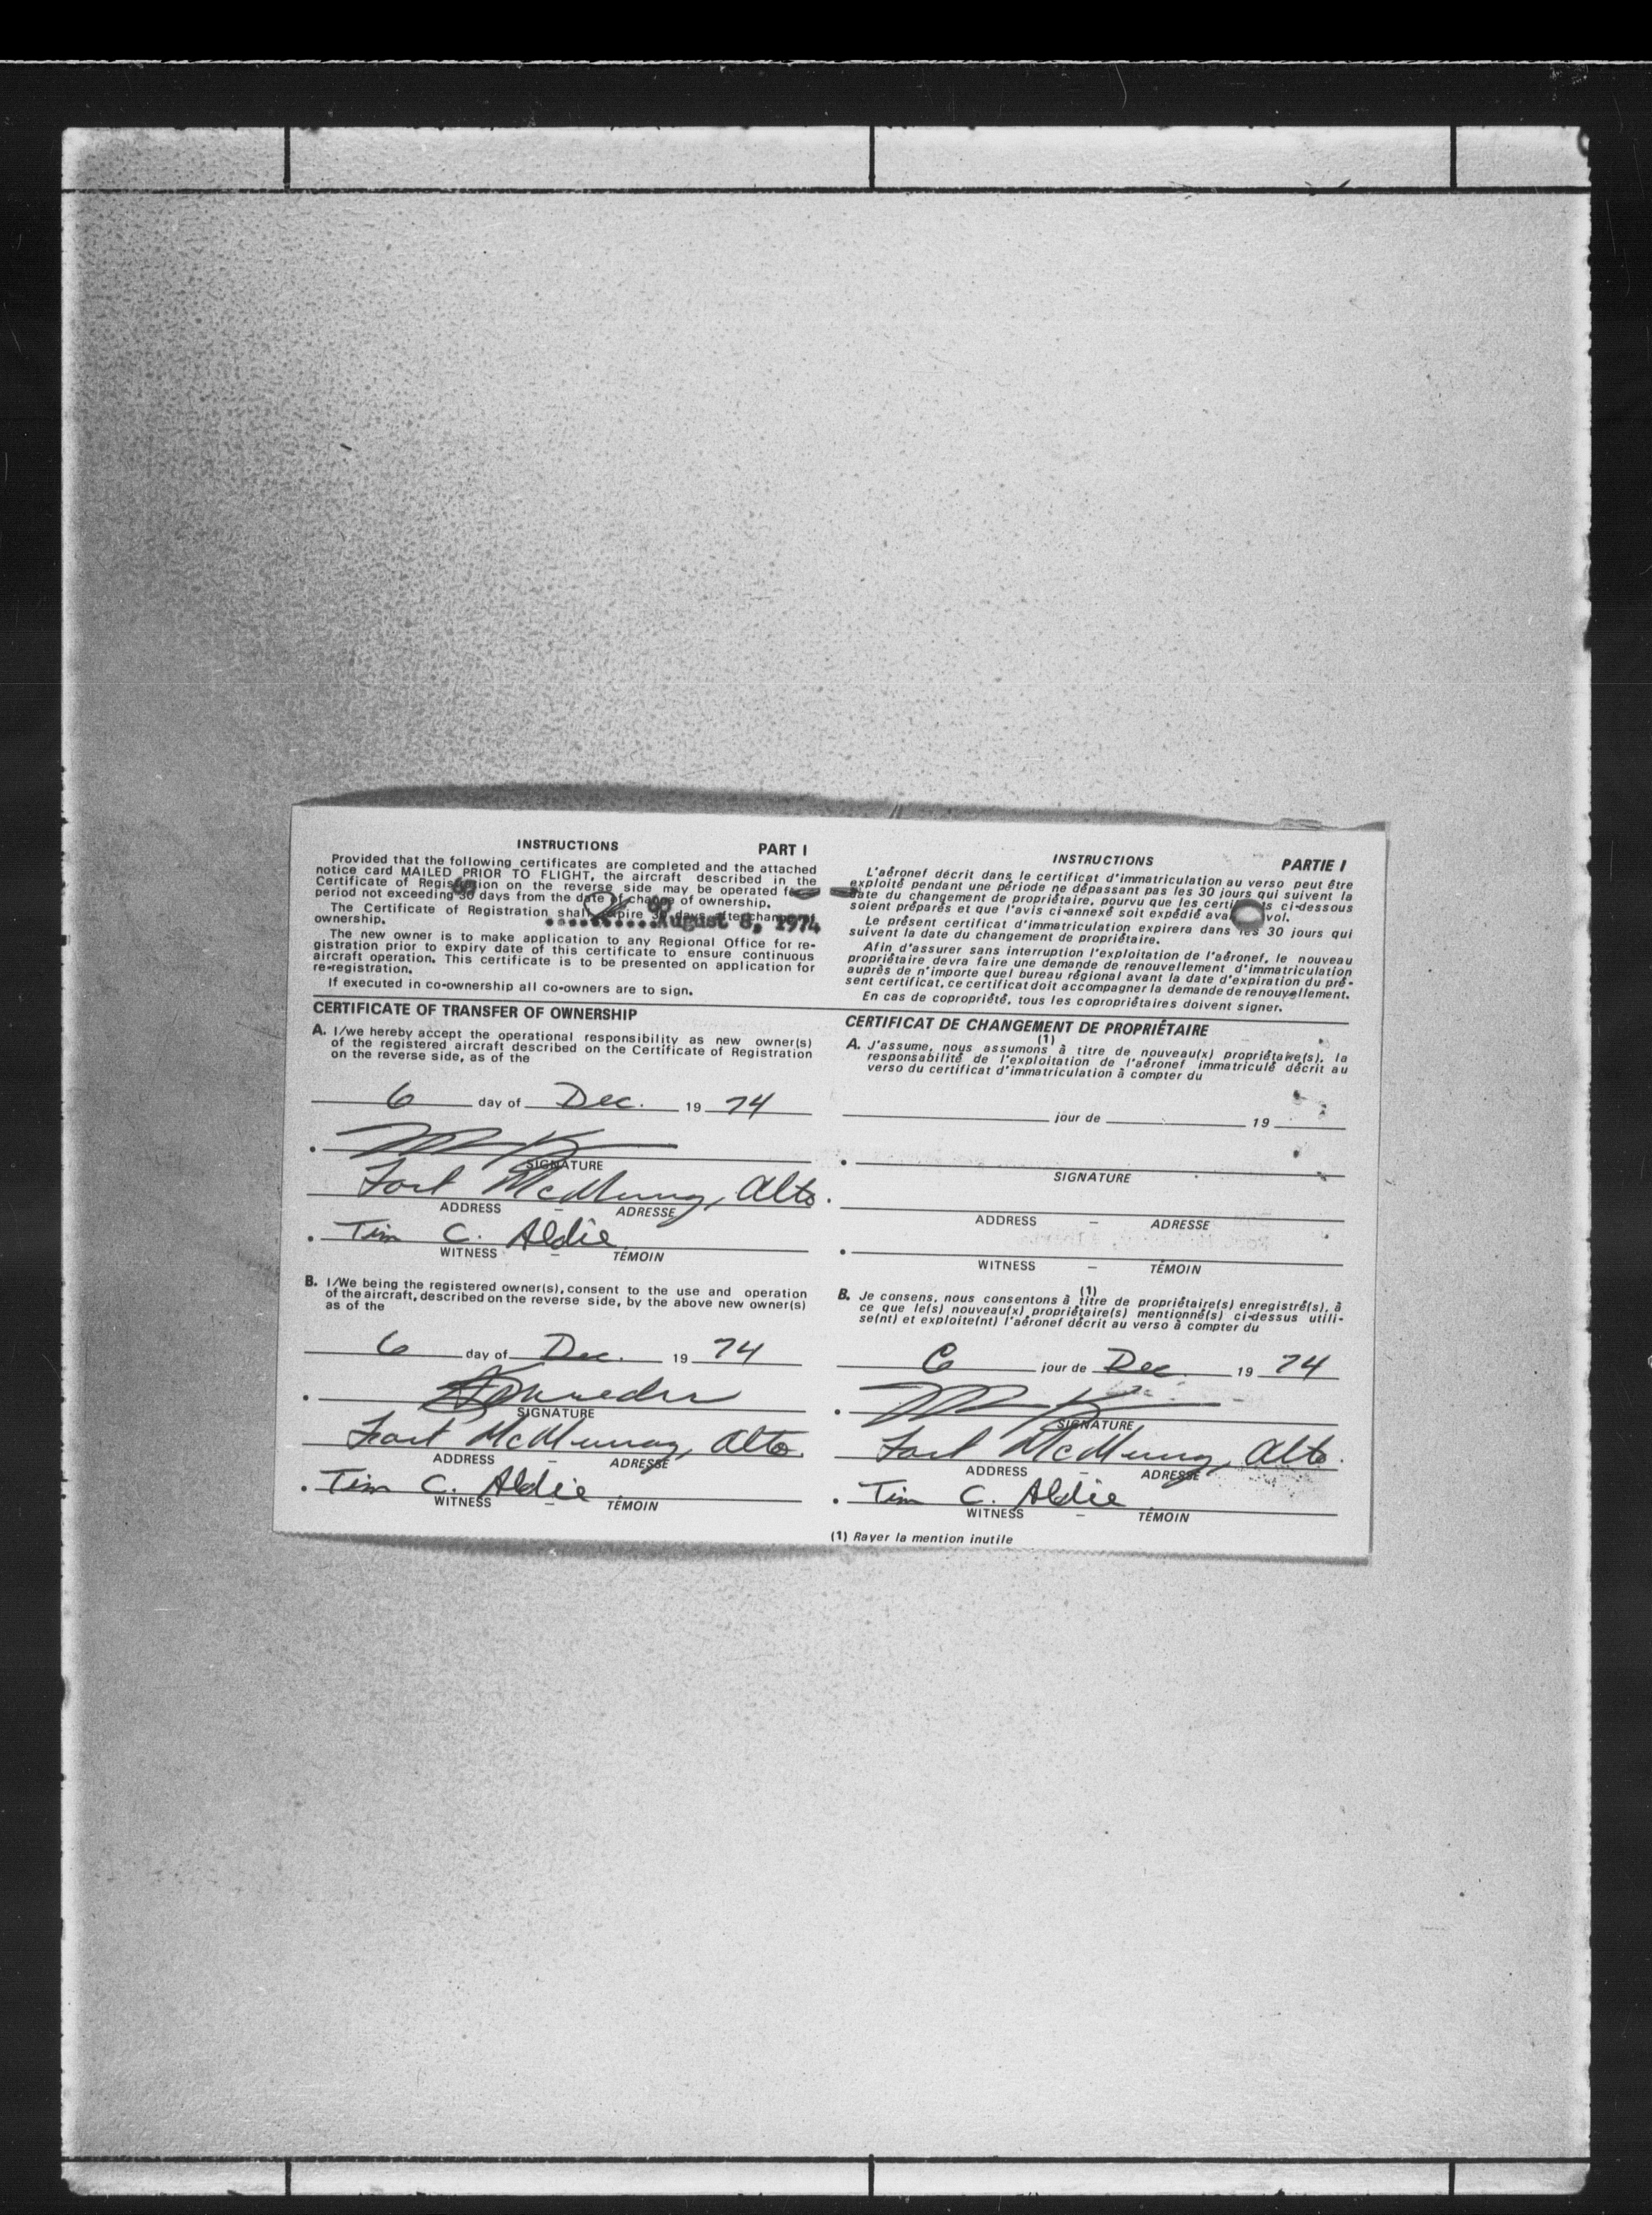 INSTRUCTIONS PART I
Provided that the following certificates are completed and the attached
notice card MAILED PRIOR TO FLIGHT, the aircraft described in the
Certificate of Registration on the reverse side may be operated for
period not exceeding 30 days from the date of change of ownership.
The Certificate of Registration shall expire 30 days after change of
ownership.
August 8, 1974
The new owner is to make application to any Regional Office for re-
gistration prior to expiry date of this certificate to ensure continuous
aircraft operation. This certificate is to be presented on application for
re-registration.
If executed in co-ownership all co-owners are to sign.
CERTIFICATE OF TRANSFER OF OWNERSHIP
A. I/we hereby accept the operational responsibility as new owner(s)
of the registered aircraft described on the Certificate of Registration
on the reverse side, as of the
6 day of Dec. 19 74
SIGNATURE
Fort McMurray, Alta.
ADDRESS – ADRESSE
Tim C. Aldie
WITNESS – TÉMOIN
B. I/We being the registered owner(s), consent to the use and operation
of the aircraft, described on the reverse side, by the above new owner(s)
as of the
6 day of Dec. 19 74
SIGNATURE
Fort McMurray, Alta.
ADDRESS – ADRESSE
Tim C. Aldie
WITNESS – TÉMOIN
INSTRUCTIONS PARTIE I
L'aéronef décrit dans le certificat d'immatriculation au verso peut être
exploité pendant une période ne dépassant pas les 30 jours qui suivent la
date du changement de propriétaire, pourvu que les certificats ci-dessous
soient préparés et que l'avis ci-annexé soit expédié avant vol.
Le présent certificat d'immatriculation expirera dans les 30 jours qui
suivent la date du changement de propriétaire.
Afin d'assurer sans interruption l'exploitation de l'aéronef, le nouveau
propriétaire devra faire une demande de renouvellement d'immatriculation
auprès de n'importe quel bureau régional avant la date d'expiration du pré-
sent certificat, ce certificat doit accompagner la demande de renouvellement.
En cas de copropriété, tous les copropriétaires doivent signer.
CERTIFICAT DE CHANGEMENT DE PROPRIÉTAIRE
(1)
A. J'assume, nous assumons à titre de nouveau(x) propriétaire(s), la
responsabilité de l'exploitation de l'aéronef immatriculé décrit au
verso du certificat d'immatriculation à compter du
jour de 19
SIGNATURE
ADDRESS – ADRESSE
WITNESS – TÉMOIN
(1)
B. Je consens, nous consentons à titre de propriétaire(s) enregistré(s), à
ce que le(s) nouveau(x) propriétaire(s) mentionné(s) ci-dessus utili-
se(nt) et exploite(nt) l'aéronef décrit au verso à compter du
6 jour de Dec 19 74
SIGNATURE
Fort McMurray, Alta.
ADDRESS – ADRESSE
Tim C. Aldie
WITNESS – TÉMOIN
(1) Rayer la mention inutile